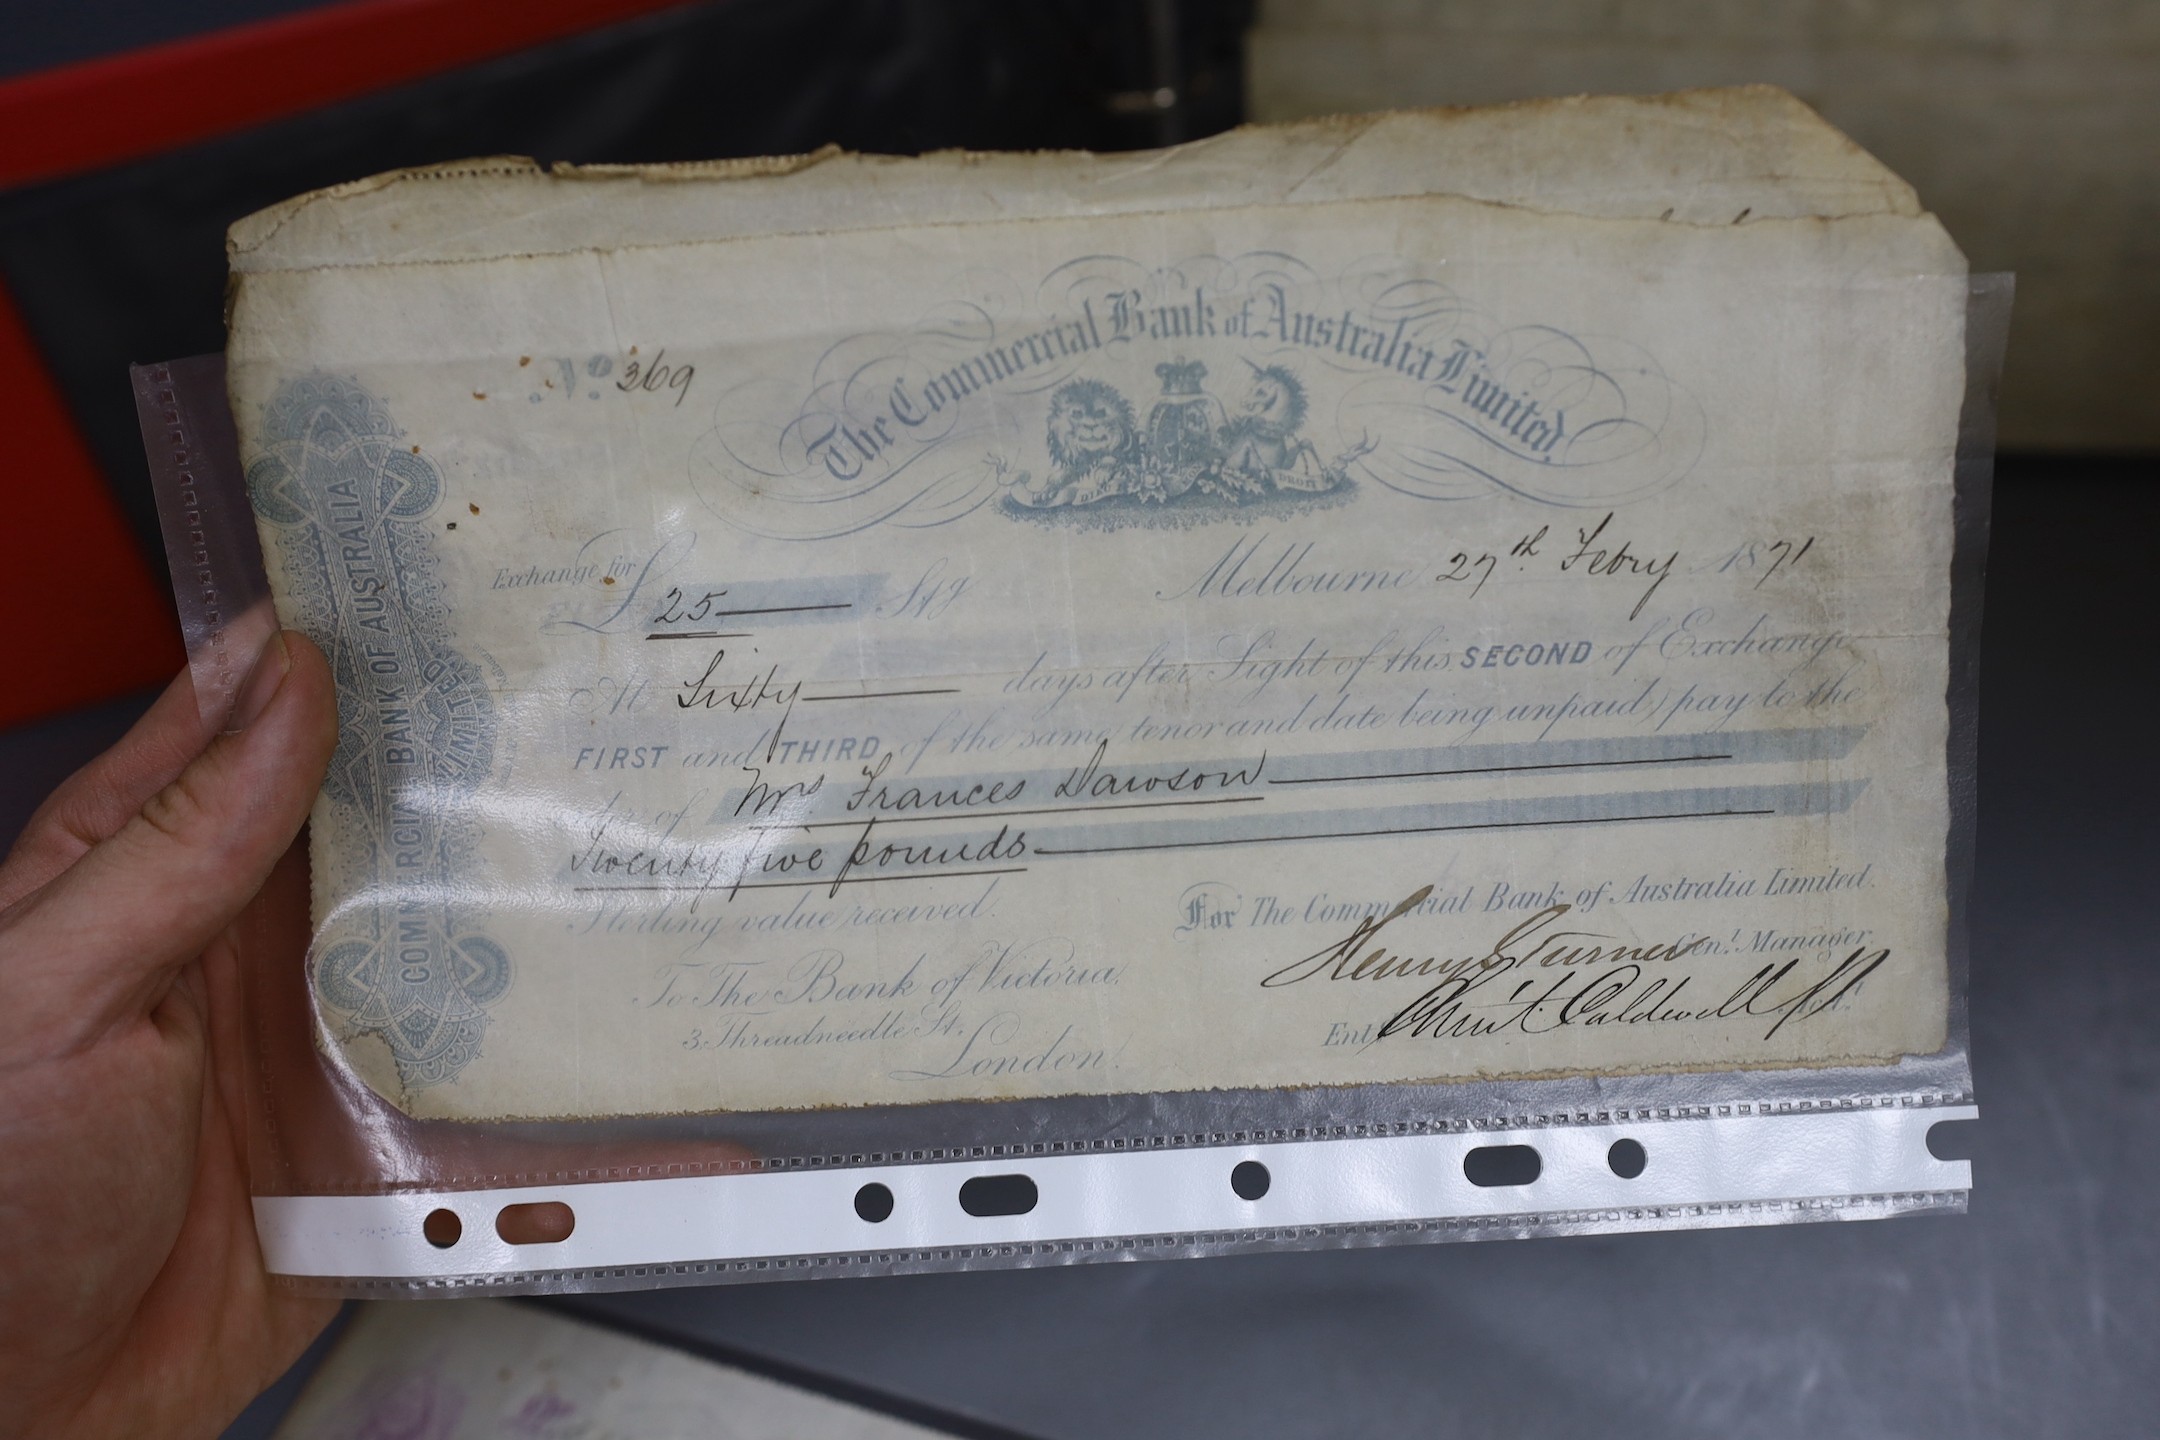 The Commercial Bank of Australia Limited.
No. 369
DIEU DROIT
COMMERCIAL BANK OF AUSTRALIA
LIMITED
Exchange for
£ 25 Stg
Melbourne 27th Febry 1871
At Sixty days after Sight of this SECOND of Exchange
FIRST and THIRD of the same tenor and date being unpaid) pay to the
of Mrs Frances Dawson
Twenty five pounds
Sterling value received.
For The Commercial Bank of Australia Limited.
Henry G Turner Genl. Manager.
To The Bank of Victoria.
3 Threadneedle St.
London.
Ent Caldwell